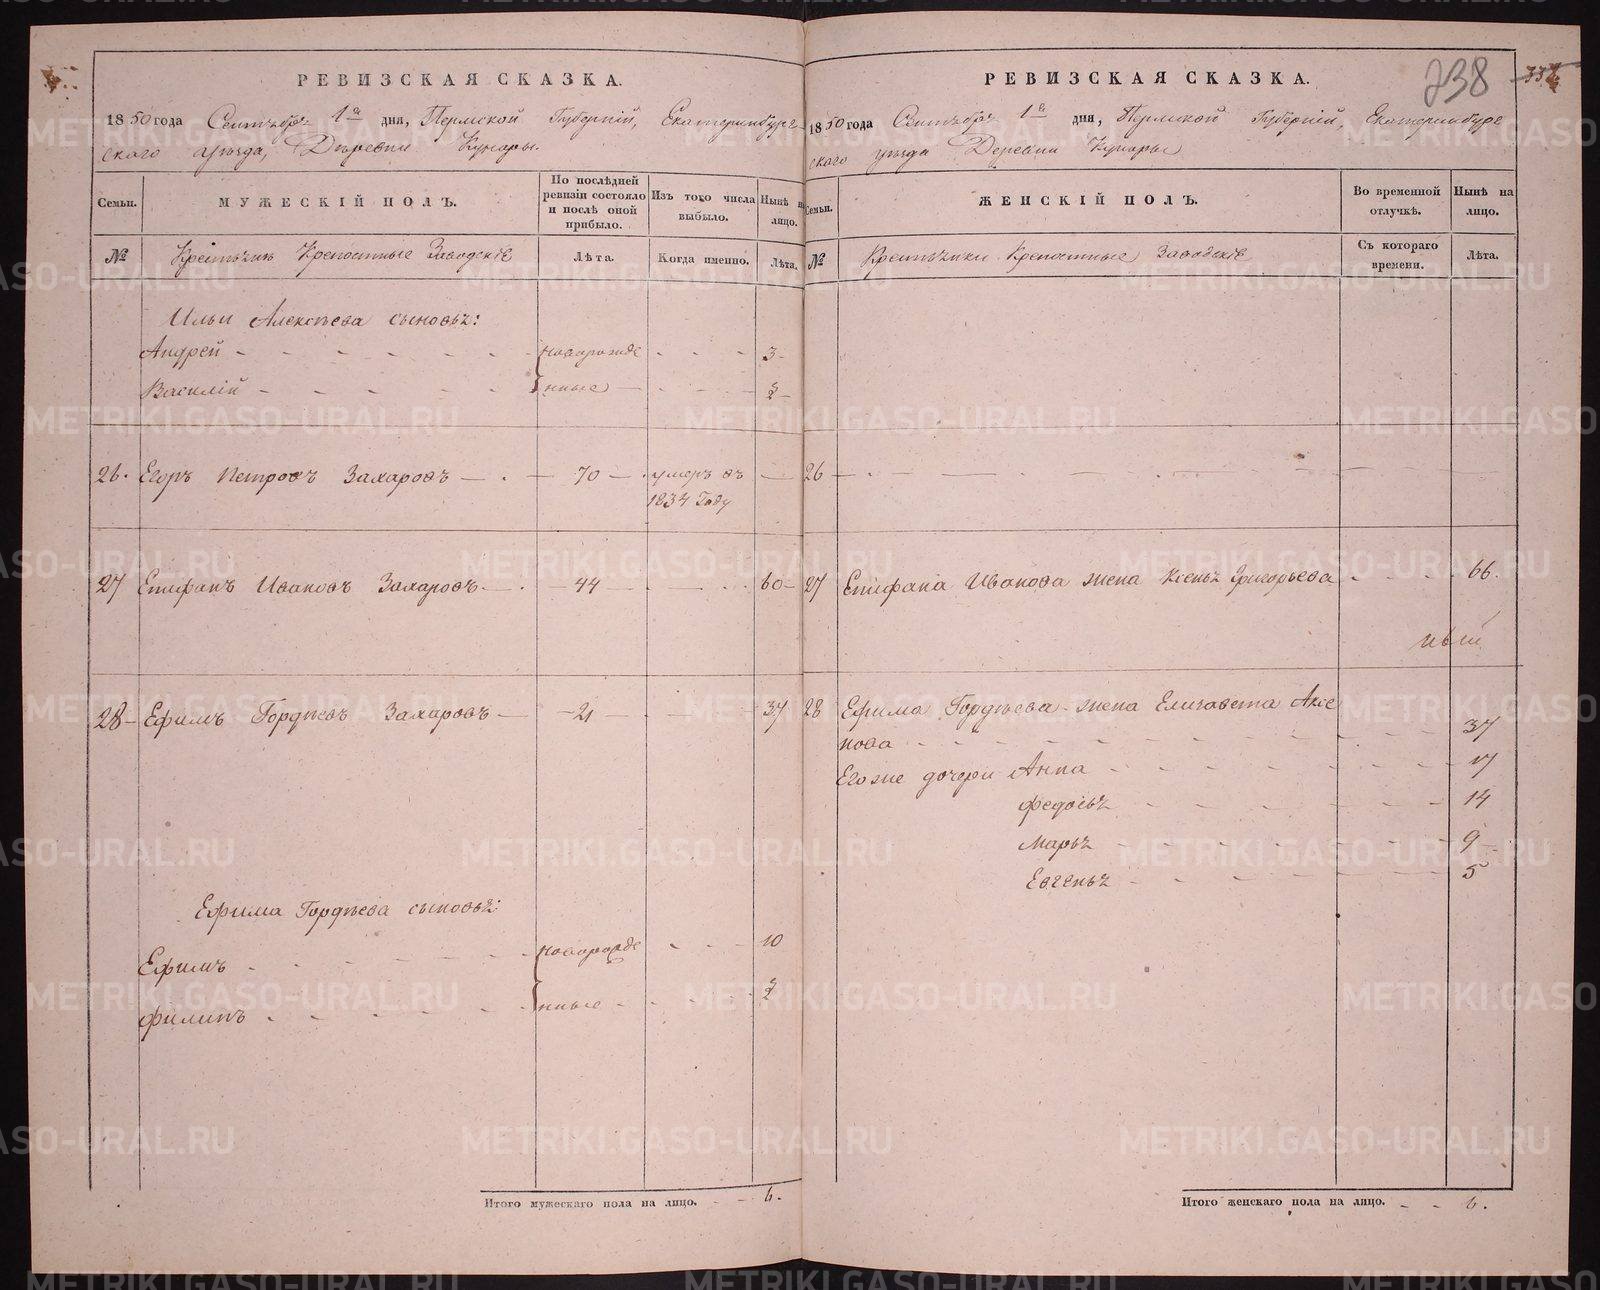 РЕВИЗСКАЯ СКАЗКА.
1850 года Сентября 1го дня, Пермской Губерніи, Екатеринбург-
скаго уѣзда, Деревни Кунары.
Семьи.
МУЖЕСКІЙ ПОЛЪ.
По послѣдней ревизіи состояло и послѣ оной прибыло.
Изъ того числа выбыло.
Нынѣ на лицо.
№
Крестьянъ Крепостные Заводскіе
Лѣта.
Когда именно.
Лѣта.
Ильи Алексѣева сыновья:
Андрей - новорожде 3
Василій - нные -
26. Егоръ Петровъ Захаровъ - 70 - умеръ въ -
1834 Году
27 Епифанъ Ивановъ Захаровъ - 44 - 60
28 Ефимъ Гордѣевъ Захаровъ - 21 - 37
Ефима Гордѣева сыновья:
Ефимъ - новорожде - 10
Филипъ - нные -
Итого мужескаго пола на лицо. - 6.
РЕВИЗСКАЯ СКАЗКА.
738 332
1850 года Сентября 1го дня, Пермской Губерніи, Екатеринбург
скаго уѣзда Деревни Кунары
Семьи.
ЖЕНСКІЙ ПОЛЪ.
Во временной отлучкѣ.
Нынѣ на лицо.
№
Крестьянки Крепостные Заводскіе
Съ котораго времени.
Лѣта.
26 -
27 Епифана Иванова жена Григорьева - 66.
28 Ефима Гордѣева жена Елизавета Аксе
нова - 37
Егоже дочери Анна - 17
Федосья - 14
Марья - 9
Евгенья - 5
Итого женскаго пола на лицо. - 6.
METRIKI.GASO-URAL.RU